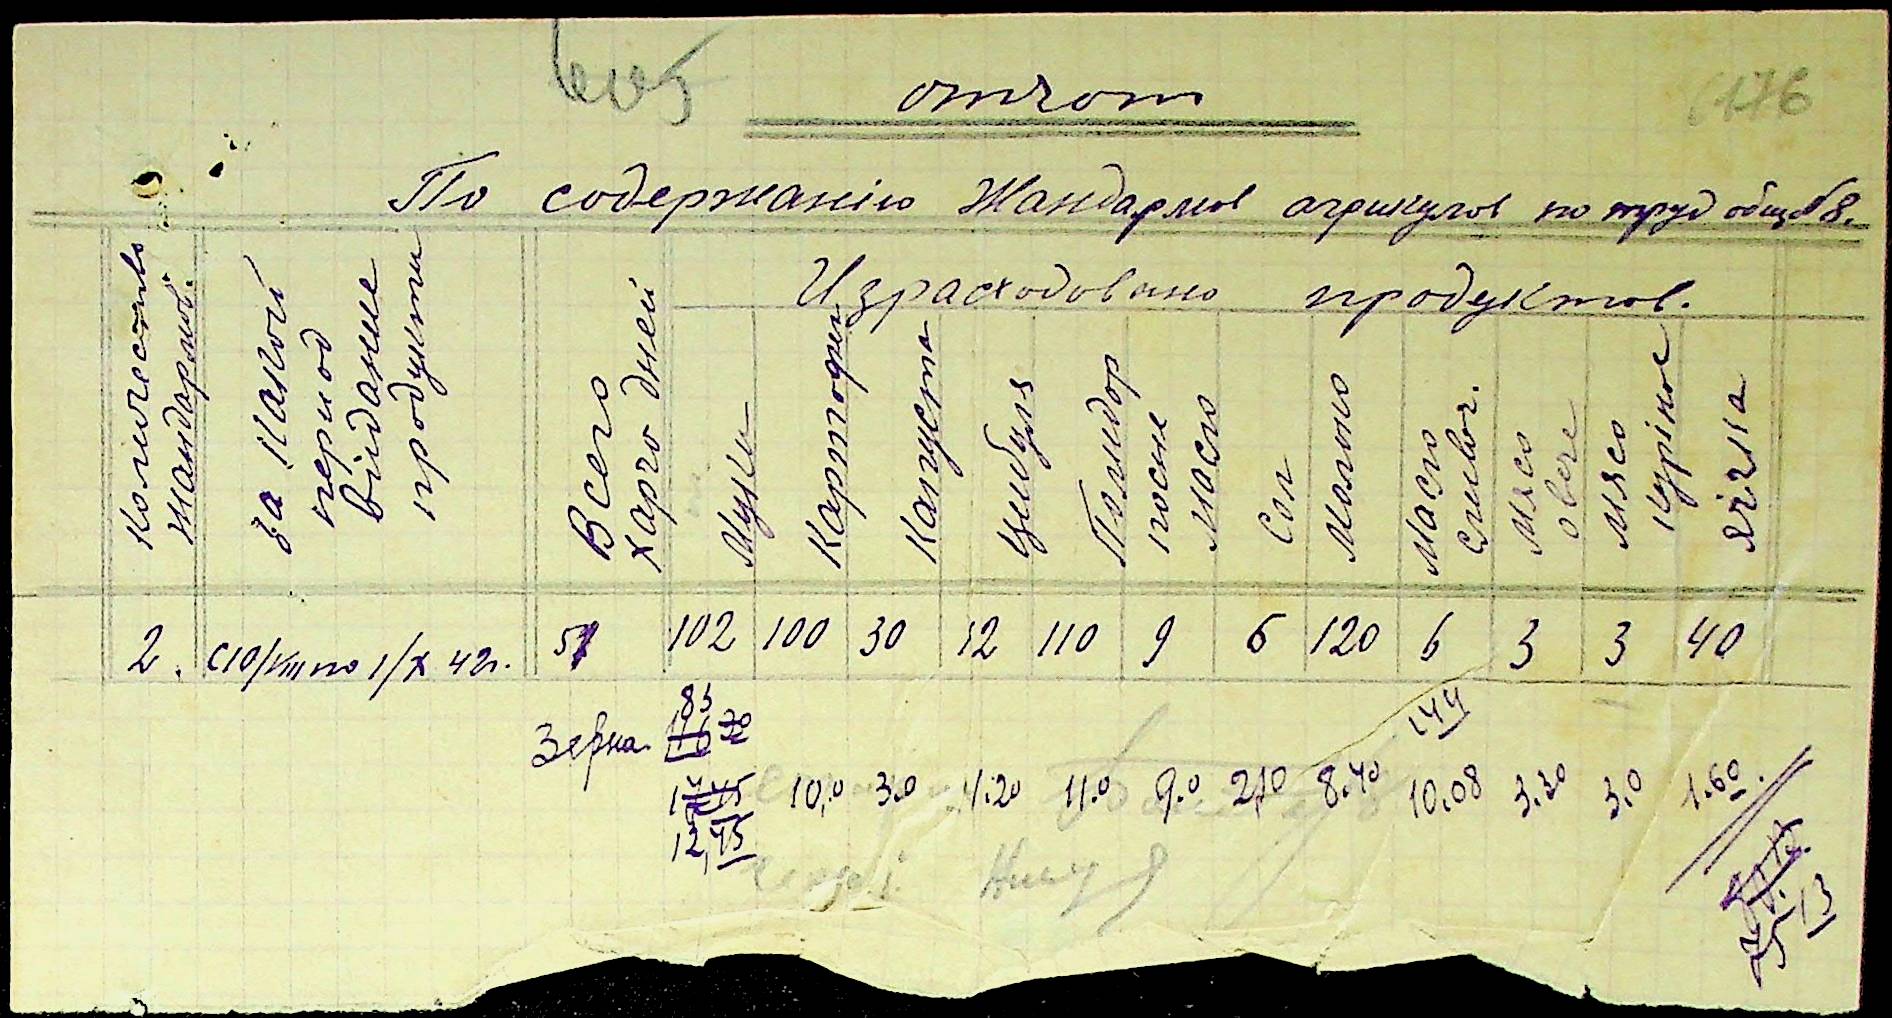 отчот
176
По содержанію Жандармов агрикулов по труд общ № 8.
Количество жандармов.
за какой период віданные продукти
Всего харчо дней
Израсходовано продуктов.
Муки
Картофел
Капуста
Цибуля
Помидор
посне масло
Сол
Молоко
Масло сливоч.
Мясо овече
Мясо курінное
Яічка
2. с10/VIII по 1/X 42г. 51 102 100 30 12 110 9 6 120 6 3 3 40
Зерна
83
144
10,0 3.0 1.20 11.0 9.0 2,10 8.40 10.08 3.30 3.0 1.60.
12,45
75 13